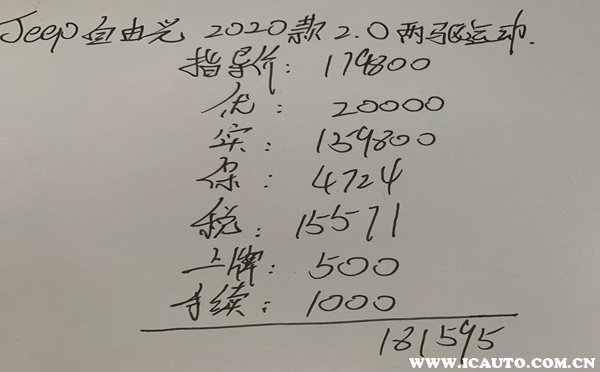 Jeep自由光 2020款 2.0两驱运动.
指导价: 179800
优: 20000
实: 159800
保: 4724
税: 15571
上牌: 500
手续: 1000
181595
爱卡汽车
WWW.ICAUTO.COM.CN